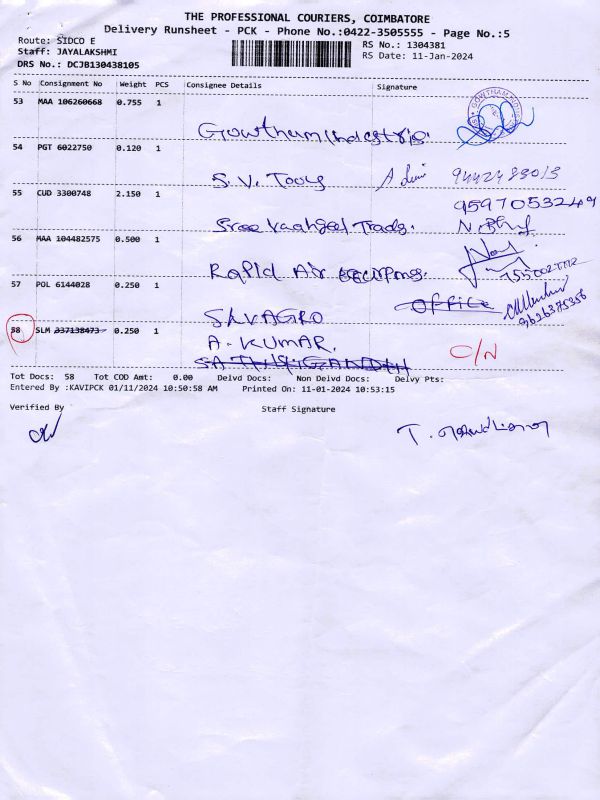 THE PROFESSIONAL COURIERS, COIMBATORE
Delivery Runsheet - PCK - Phone No.:0422-3505555 - Page No.:5
Route: SIDCO E
RS No.: 1304381
Staff: JAYALAKSHMI
RS Date: 11-Jan-2024
DRS No.: DCJB130438105
S No Consignment No Weight PCS Consignee Details Signature
53 MAA 106260668 0.755 1
Gowtham Industris.
54 PGT 6022750 0.120 1
S.V. Tools
55 CUD 3300748 2.150 1
9597053249
Sree Traders.
56 MAA 104482575 0.500 1
Rapid Air
57 POL 6144028 0.250 1
Office
9626375356
SLVAGRO
58 SLM 337138473 0.250 1
A. KUMAR.
C/N
Tot Docs: 58 Tot COD Amt: 0.00 Delvd Docs: Non Delvd Docs: Delvy Pts:
Entered By :KAVIPCK 01/11/2024 10:50:58 AM Printed On: 11-01-2024 10:53:15
Verified By Staff Signature